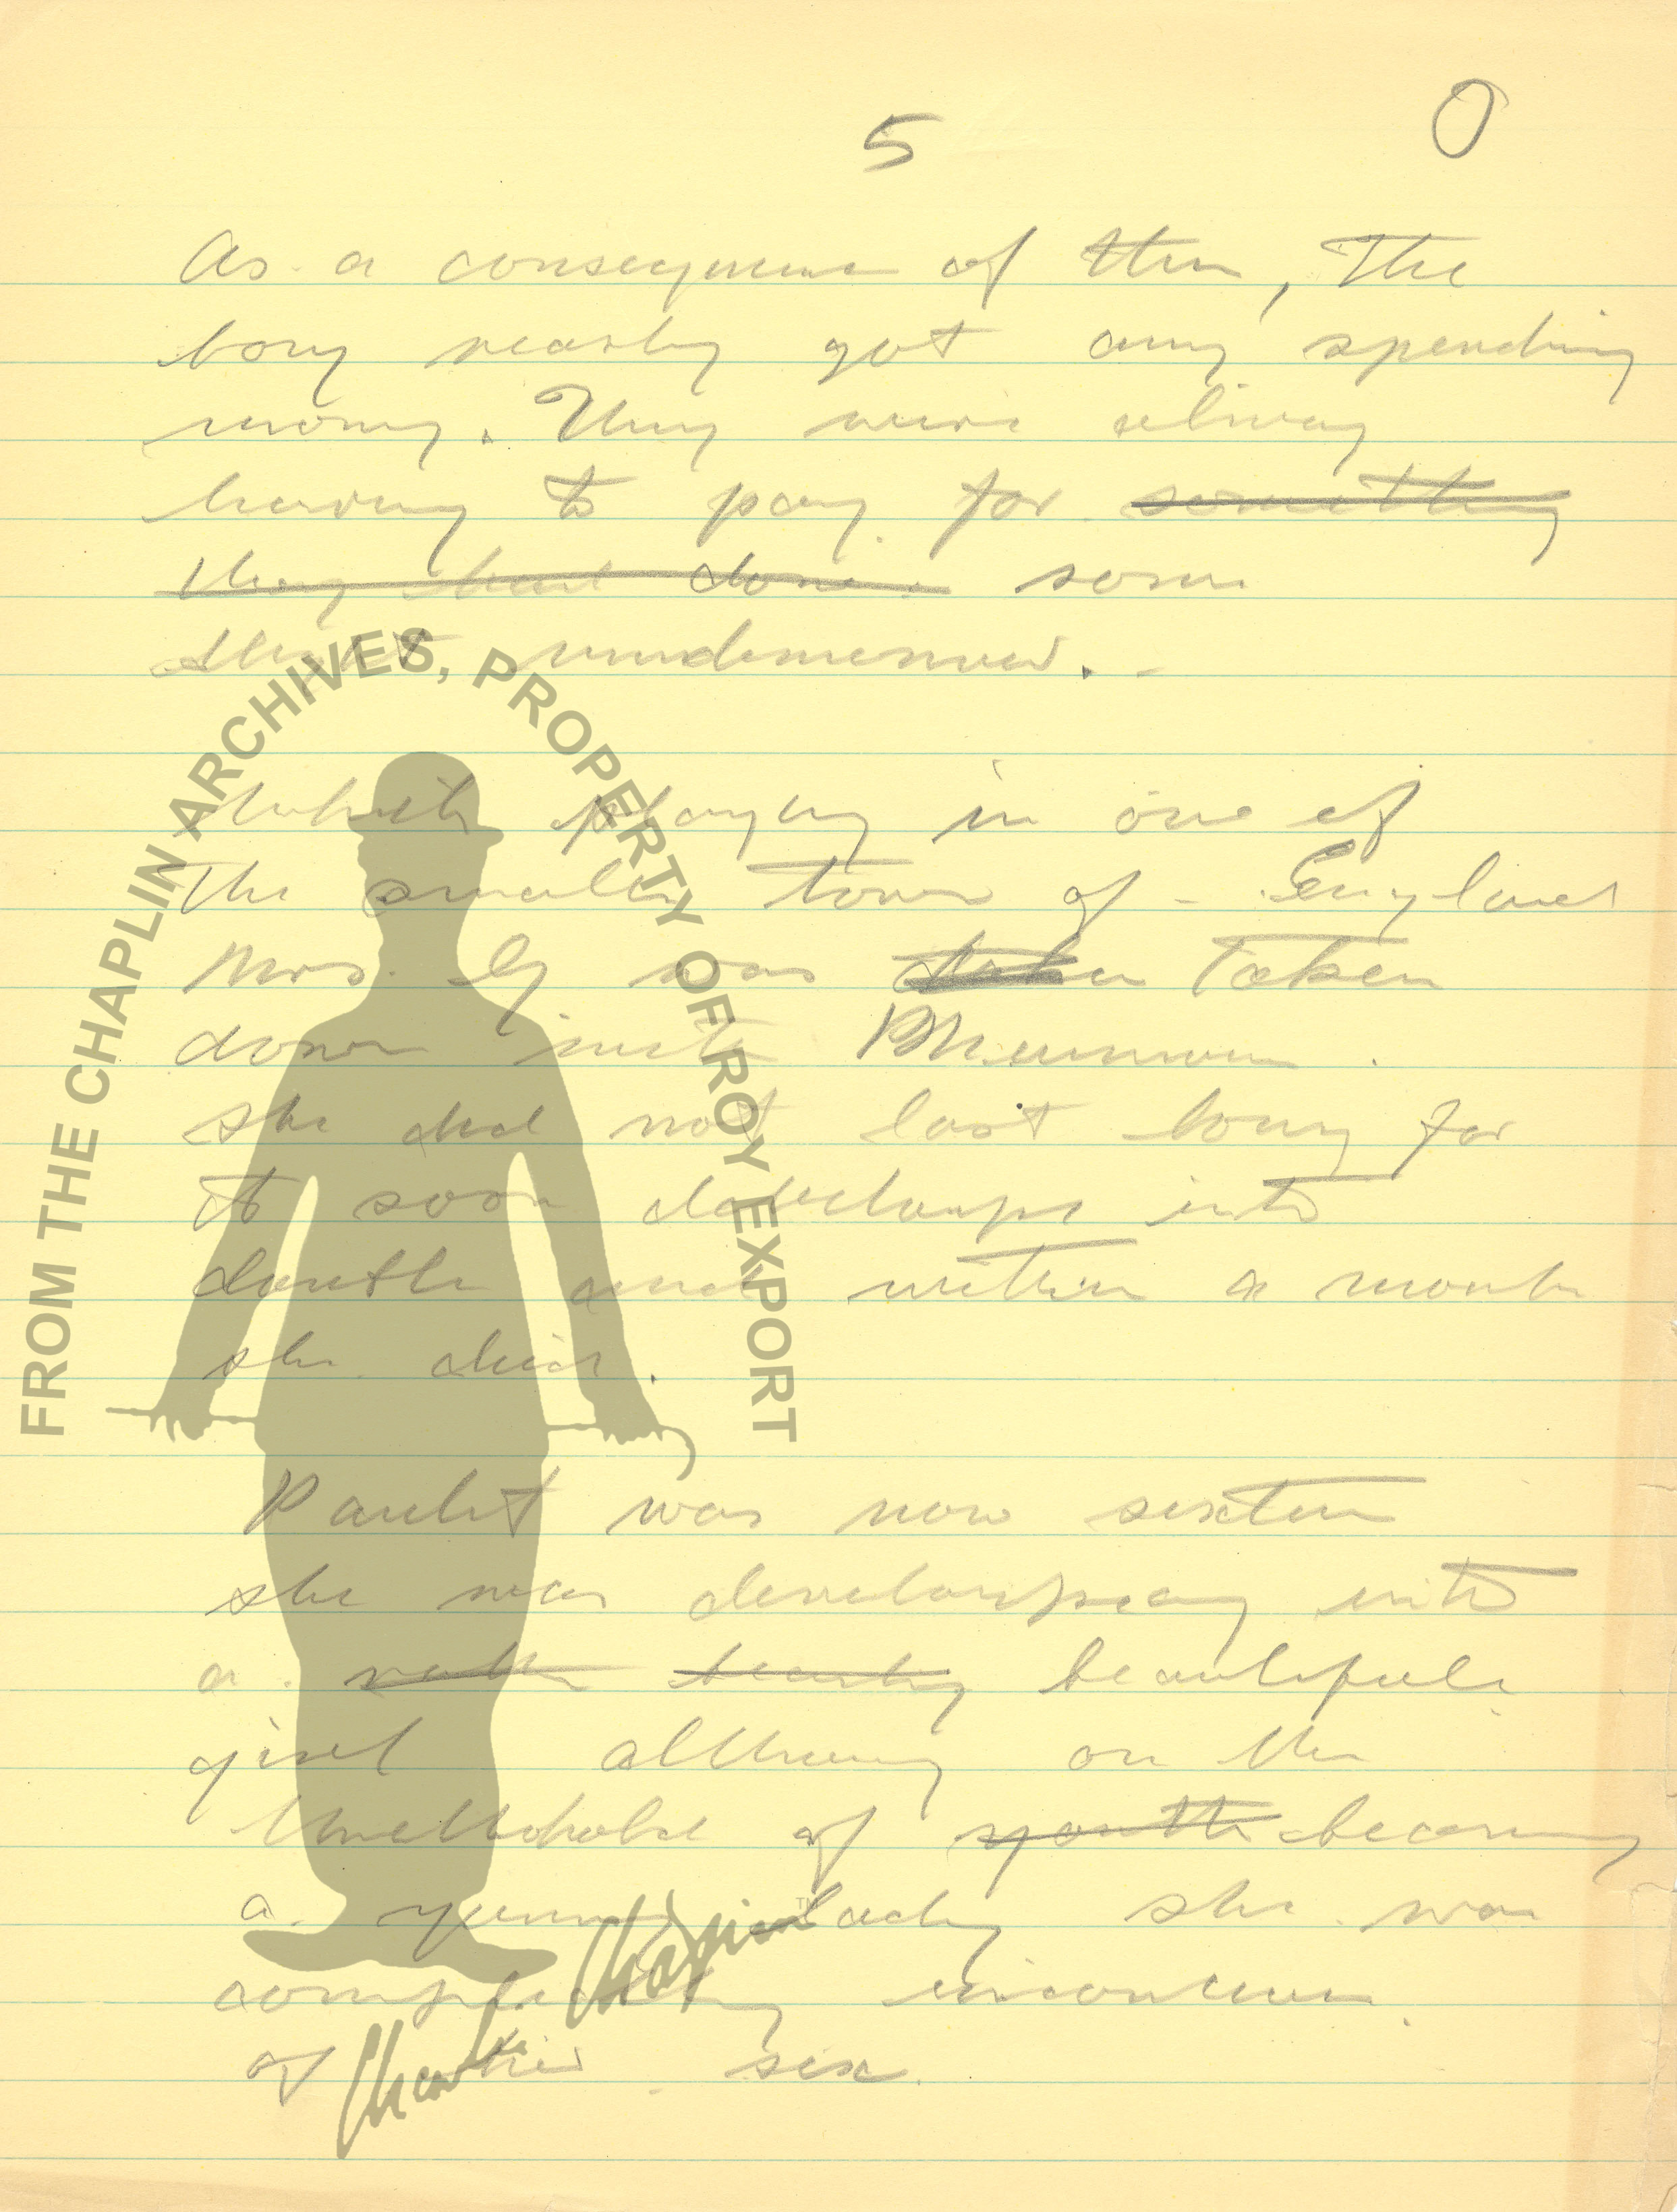 5 0
As a consequence of this, The
boys nearly got any spending
money. They were always
having to pay for something
they had done some
slight misdemenor.
whilst playing in one of
The smaller towns of England
Mrs. G was taken Taken
down with Pneumonia.
she did not last long for
it soon develops into
double and within a month
she died.
Paulet was now sixteen
she was developing into
a rather beauty beautiful
girl although on the
threshold of youth becoming
a young lady she was
completely unconscious
of her sex
FROM THE CHAPLIN ARCHIVES, PROPERTY OF ROY EXPORT
Charlie Chaplin TM